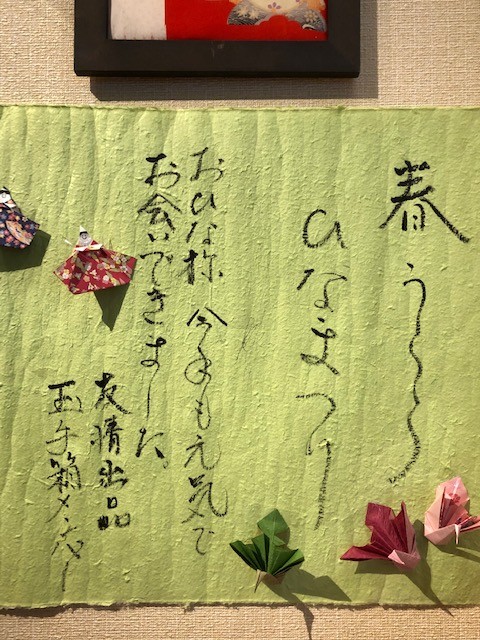 春うらら
ひなまつり
おひな様 今年も元気で
お会いできました。
友情出品
玉手箱メンバー